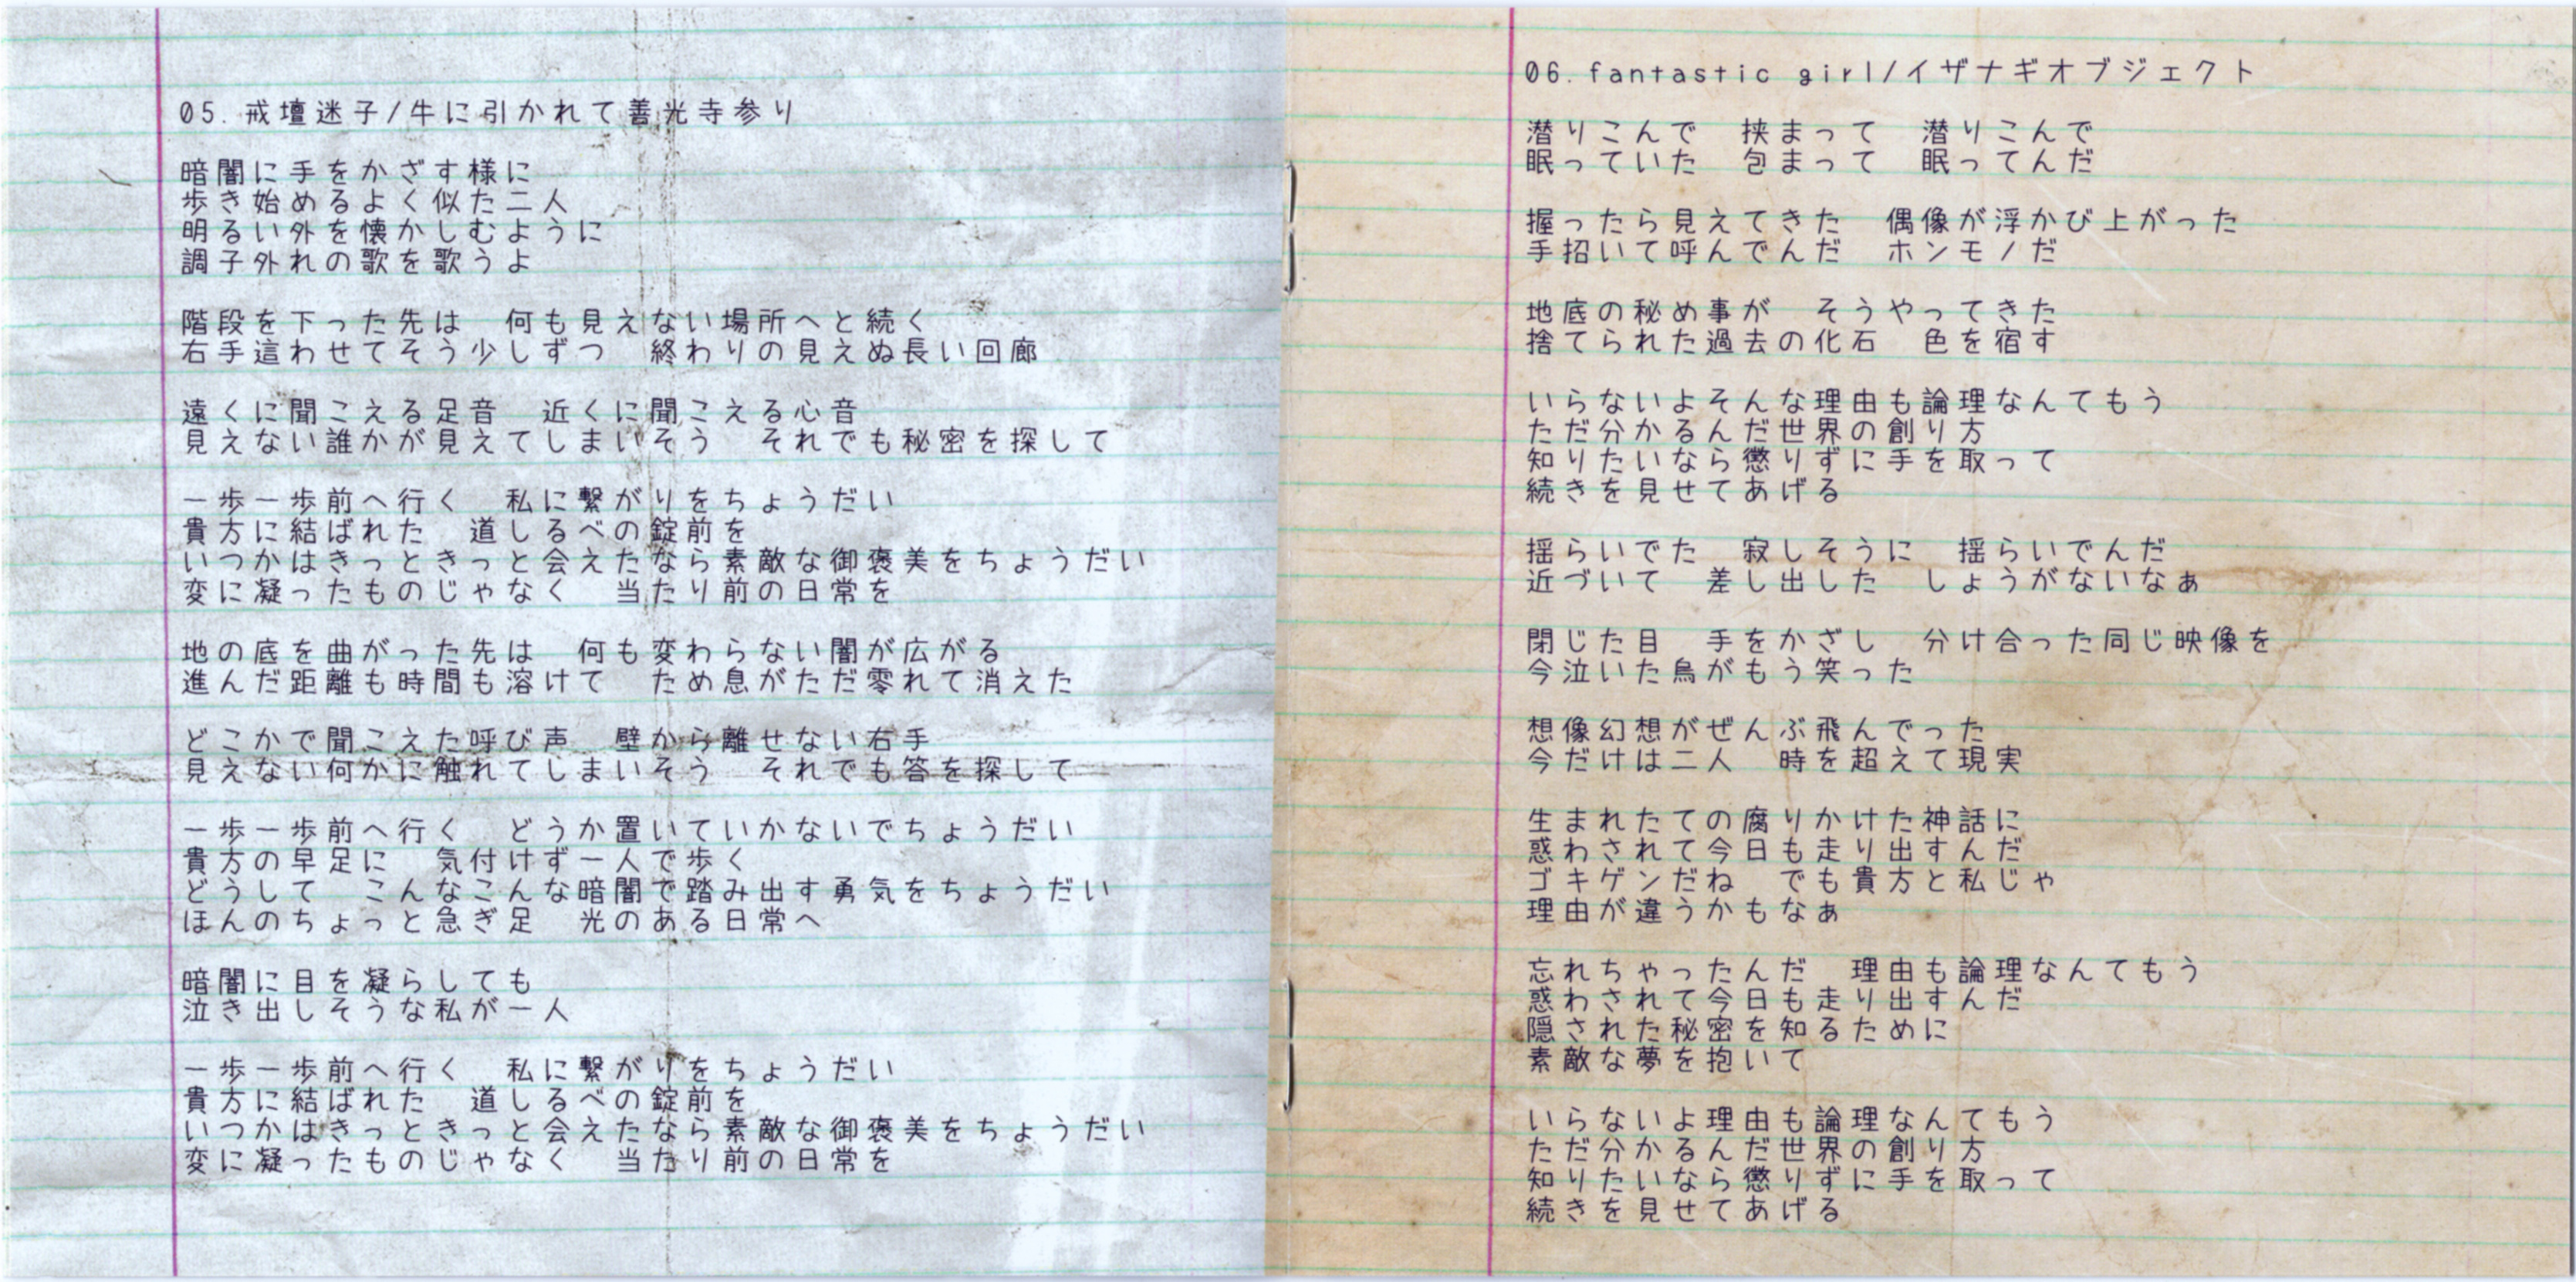 05. 戒壇迷子/牛に引かれて善光寺参り
暗闇に手をかざす様に
歩き始めるよく似た二人
明るい外を懐かしむように
調子外れの歌を歌うよ
階段を下った先は　何も見えない場所へと続く
右手這わせてそう少しずつ　終わりの見えぬ長い回廊
遠くに聞こえる足音　近くに聞こえる心音
見えない誰かが見えてしまいそう　それでも秘密を探して
一歩一歩前へ行く　私に繋がりをちょうだい
貴方に結ばれた　道しるべの錠前を
いつかはきっときっと会えたなら素敵な御褒美をちょうだい
変に凝ったものじゃなく　当たり前の日常を
地の底を曲がった先は　何も変わらない闇が広がる
進んだ距離も時間も溶けて　ため息がただ零れて消えた
どこかで聞こえた呼び声　壁から離せない右手
見えない何かに触れてしまいそう　それでも答を探して
一歩一歩前へ行く　どうか置いていかないでちょうだい
貴方の早足に　気付けず一人で歩く
どうして　こんなこんな暗闇で踏み出す勇気をちょうだい
ほんのちょっと急ぎ足　光のある日常へ
暗闇に目を凝らしても
泣き出しそうな私が一人
一歩一歩前へ行く　私に繋がりをちょうだい
貴方に結ばれた　道しるべの錠前を
いつかはきっときっと会えたなら素敵な御褒美をちょうだい
変に凝ったものじゃなく　当たり前の日常を
06. fantastic girl/イザナギオブジェクト
潜りこんで　挟まって　潜りこんで
眠っていた　包まって　眠ってんだ
握ったら見えてきた　偶像が浮かび上がった
手招いて呼んでんだ　ホンモノだ
地底の秘め事が　そうやってきた
捨てられた過去の化石　色を宿す
いらないよそんな理由も論理なんてもう
ただ分かるんだ世界の創り方
知りたいなら懲りずに手を取って
続きを見せてあげる
揺らいでた　寂しそうに　揺らいでんだ
近づいて　差し出した　しょうがないなぁ
閉じた目　手をかざし　分け合った同じ映像を
今泣いた烏がもう笑った
想像幻想がぜんぶ飛んでった
今だけは二人　時を超えて現実
生まれたての腐りかけた神話に
惑わされて今日も走り出すんだ
ゴキゲンだね　でも貴方と私じゃ
理由が違うかもなぁ
忘れちゃったんだ　理由も論理なんてもう
惑わされて今日も走り出すんだ
隠された秘密を知るために
素敵な夢を抱いて
いらないよ理由も論理なんてもう
ただ分かるんだ世界の創り方
知りたいなら懲りずに手を取って
続きを見せてあげる